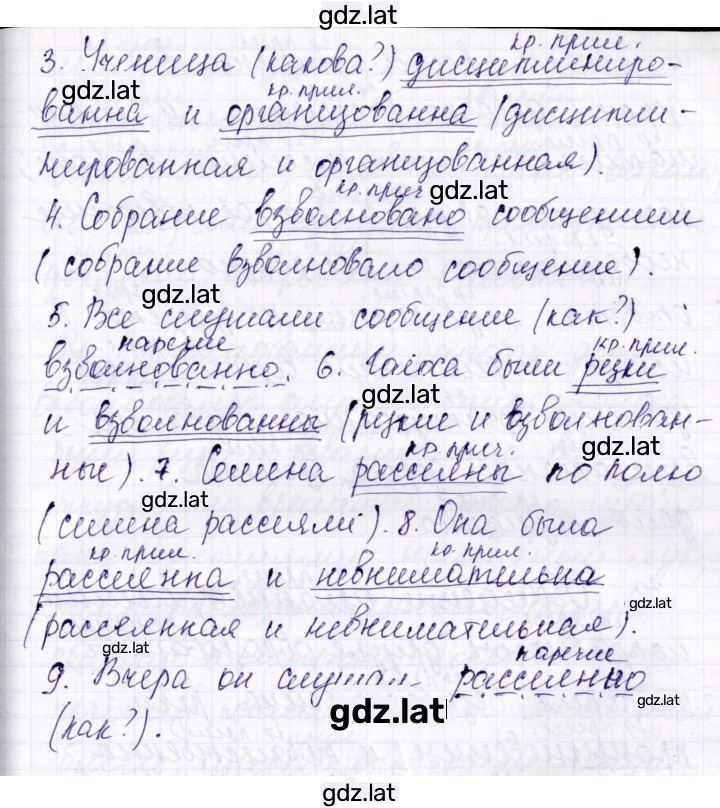 gdz.lat
кр. прил.
3. Ученица (какова?) дисциплиниро-
gdz.lat
кр. прил.
ванна и организованна (дисципли-
нированная и организованная).
кр. прич. gdz.lat
4. Собрание взволновано сообщением
(собрание взволновало сообщение).
gdz.lat
5. Все слушали сообщение (как?)
наречие кр. прил.
взволнованно. 6. Голоса были резки
gdz.lat
и взволнованны (резкие и взволнован-
кр. прич. gdz.lat
ные). 7. Семена рассеяны по полю
gdz.lat
(семена рассеяли). 8. Она была
кр. прил. кр. прил.
рассеянна и невнимательна
gdz.lat
(рассеянная и невнимательная).
наречие
9. Вчера он слушал рассеянно
gdz.lat
gdz.lat
(как?).
gdz.lat
gdz.lat